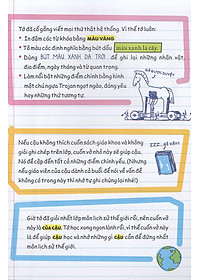 Tớ đã cố gắng viết mọi thứ thật hệ thống. Vì thế tớ luôn:
• In đậm các từ khóa bằng MÀU VÀNG
• Tô màu các định nghĩa bằng bút dấu màu xanh lá cây.
• Dùng BÚT MÀU XANH DA TRỜI để ghi lại những nhân vật,
địa điểm, ngày tháng và từ quan trọng.
• Làm nổi bật những điểm chính bằng hình
mặt chú ngựa Trojan ngọt ngào, đáng yêu
hay những thứ tương tự.
ĐÃ ĐƯỢC DUYỆT
Nếu cậu không thích cuốn sách giáo khoa và không
giỏi ghi chép trên lớp, cuốn vở nhỏ này sẽ giúp cậu.
Nó đề cập đến tất cả những điểm chính yếu. (Nhưng
nếu giáo viên của cậu dành cả buổi để nói về vấn đề
không có trong này thì nhớ tự ghi chúng lại nhé!)
Giờ tớ đã giỏi nhất lớp môn lịch sử thế giới rồi, nên cuốn vở
này là CỦA CẬU. Tớ học xong ngon lành rồi, vì thế cuốn vở này
là để giúp cậu học và nhớ những gì cậu cần để đứng nhất
môn lịch sử thế giới.